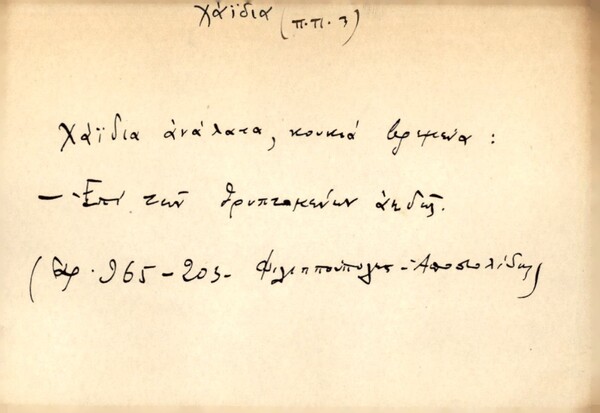 χάϊδια (π.π. 3)
Χάϊδια ἀνάλατα, κουκιά βρεμένα :
— Ἐπί τῶν θρυπτομένων ἀηδῶς.
( ἀρ. 965 - 203 - Φιλιππούπολις - Ἀποστολίδης)